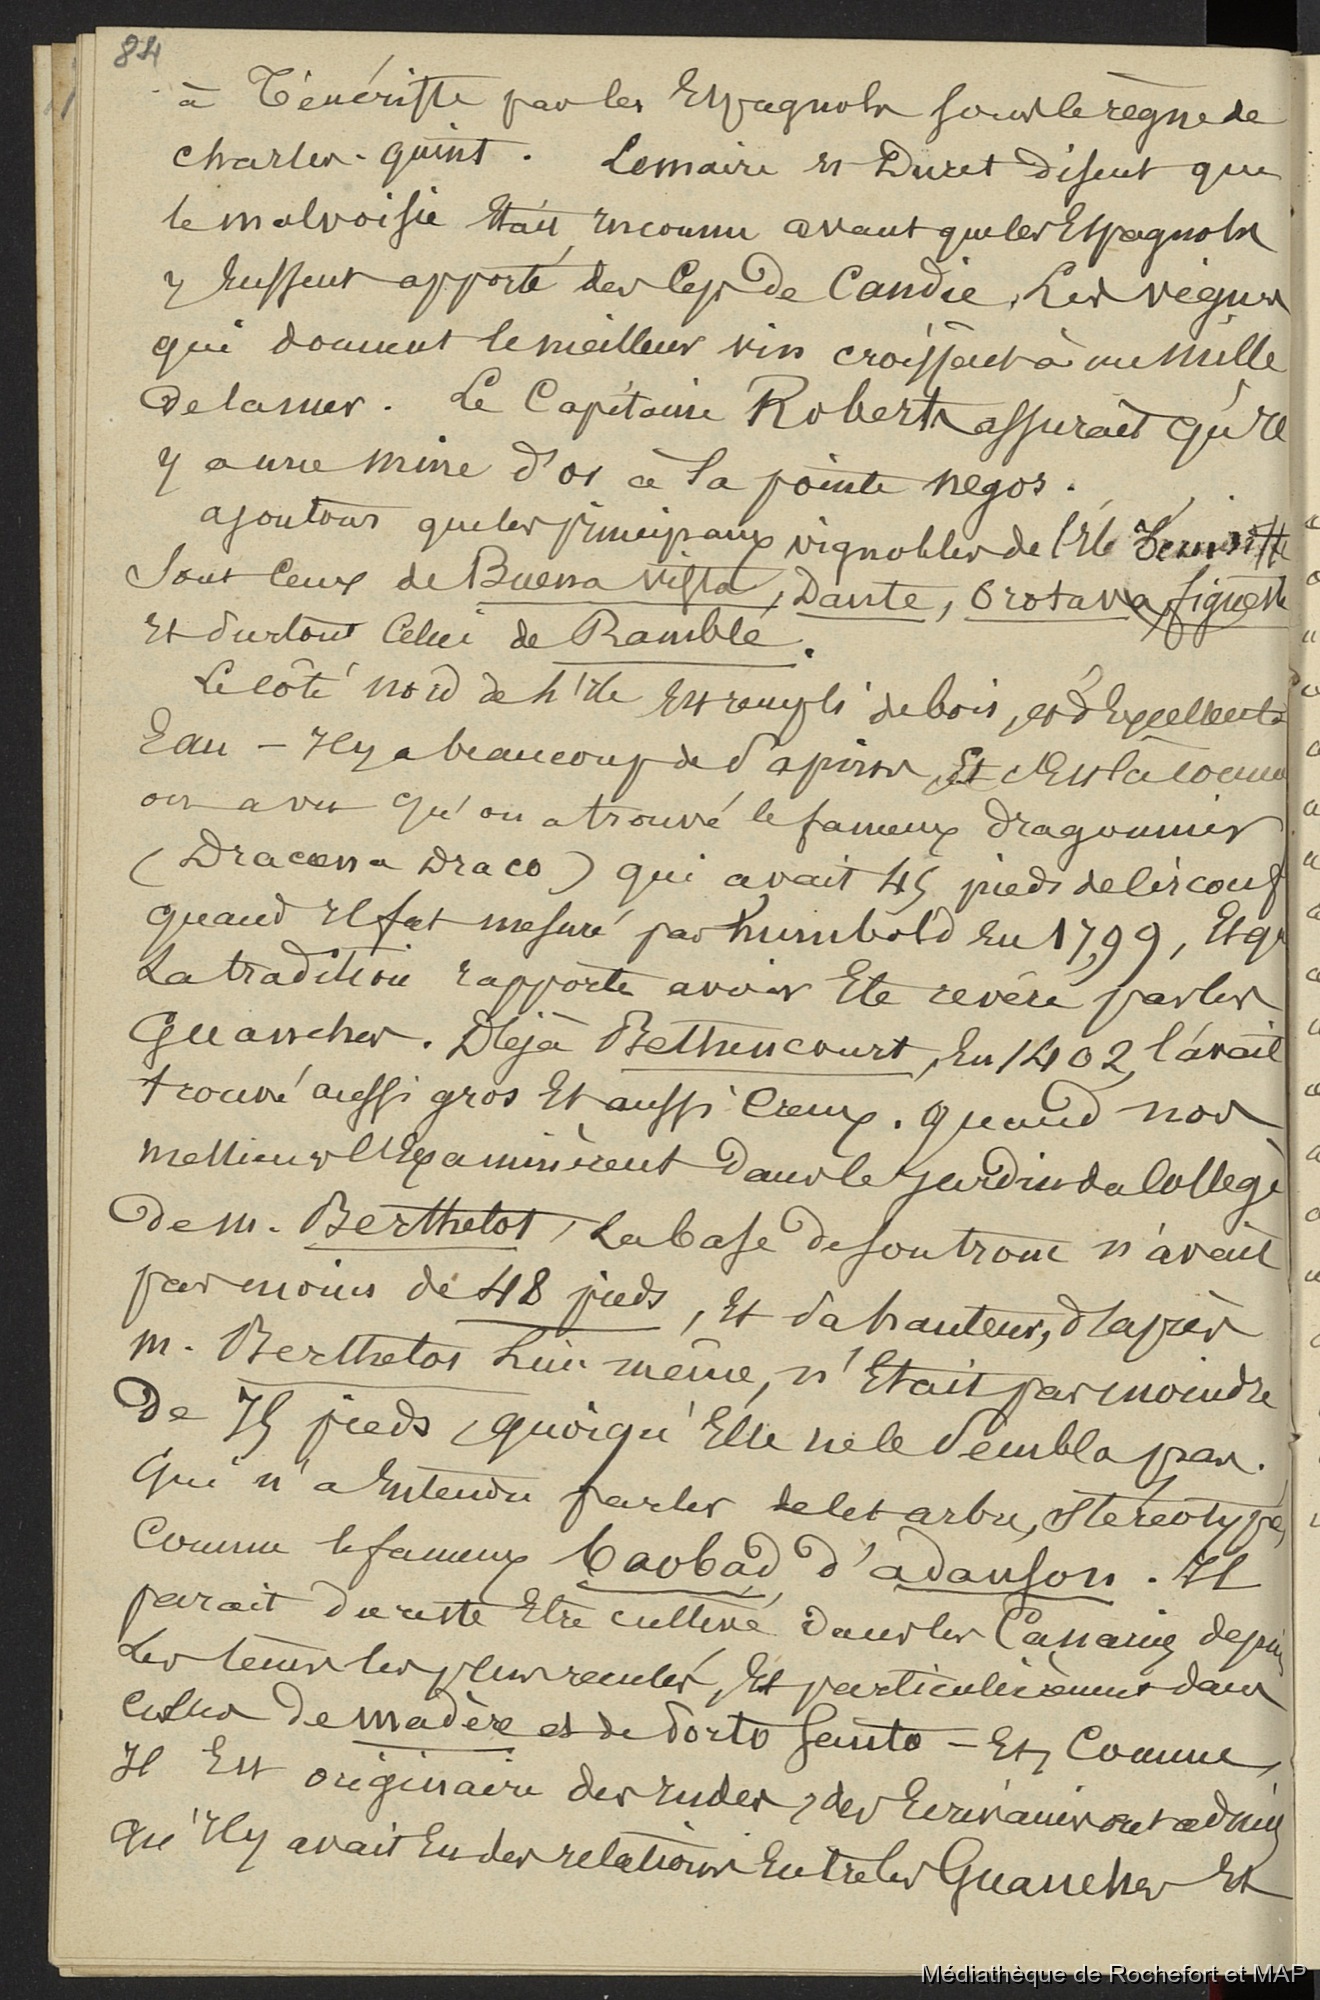 84
à Ténériffe par les Espagnols sous le règne de
charles-quint. Lemaire et Duret disent que
le malvoisie était inconnu avant que les Espagnols
y eussent apporté des Ceps de Candie. Les vignes
qui donnent le meilleur vin croissent à un mille
de la mer. Le Capitaine Roberts assurait qu'il
y a une mine d'or à la pointe negos.
ajoutons que les principaux vignobles de l'île Ténériffe
sont ceux de Buena vista, Dante, Orotava,
et surtout celui de Ramble.
Le côté nord de l'île est rempli de bois, et d'Excellente
Eau - Il y a beaucoup de sapins, Et c'Est là comme
on a vu qu'on a trouvé le fameux dragonnier
(Dracœna Draco) qui avait 45 pieds de circonf
quand Il fut mesuré par humbold en 1799, Et q
La tradition rapporte avoir Eté révéré par les
Guanches. Déjà Bethencourt, En 1402, l'avait
trouvé aussi gros Et aussi Creux. quand nos
messieurs l'Examinèrent dans le jardin du Collège
de m. Berthelot, la base de son tronc n'avait
pas moins de 48 pieds, Et sa hauteur, d'après
m. Berthelot Lui même, n'Etait pas moindre
De 75 pieds, quoiqu'Elle ne le sembla pas.
Qui n'a Entendu parler de cet arbre, stéréotypé,
Comme le fameux baobad d'adanson. Il
parait du reste Etre cultivé dans les Canaries depuis
Les tems les plus reculés, Et particulièrement dans
celles de madère et de Porto Santo - Et, Comme
Il Est originaire des Indes, des Ecrivains ont admis
qu'Il y avait Eu des relations Entre les Guanches Et
Médiathèque de Rochefort et MAP